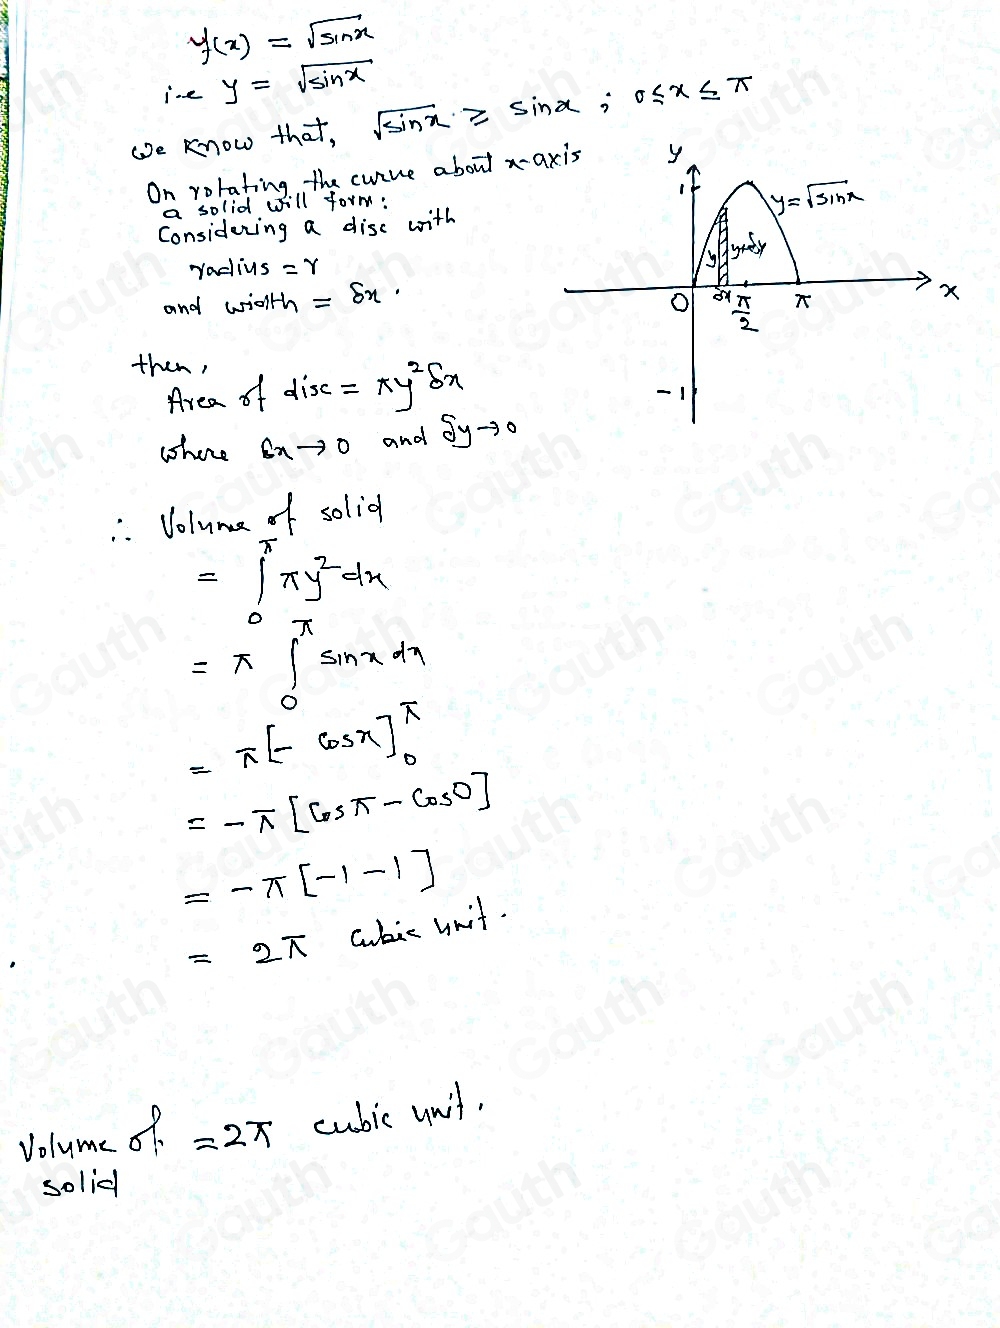 f(x) = √sinx
i.e y = √sinx
we know that, √sinx ≥ sinx ; 0≤x≤π
On rotating the curve about x-axis
a solid will form:
Considering a disc with
radius = r
and width = δx.
then,
Area of disc = πy²δx
where δx→0 and δy→0
∴ Volume of solid
= ∫₀^π πy²dx
= π ∫₀^π sinx dx
= π[- cosx]₀^π
= -π [cosπ - cos0]
= -π [-1-1]
= 2π cubic unit.
Volume of solid = 2π cubic unit.
y
1
y=√sinx
y
y+δy
0
δx
π/2
π
x
-1
Gauth